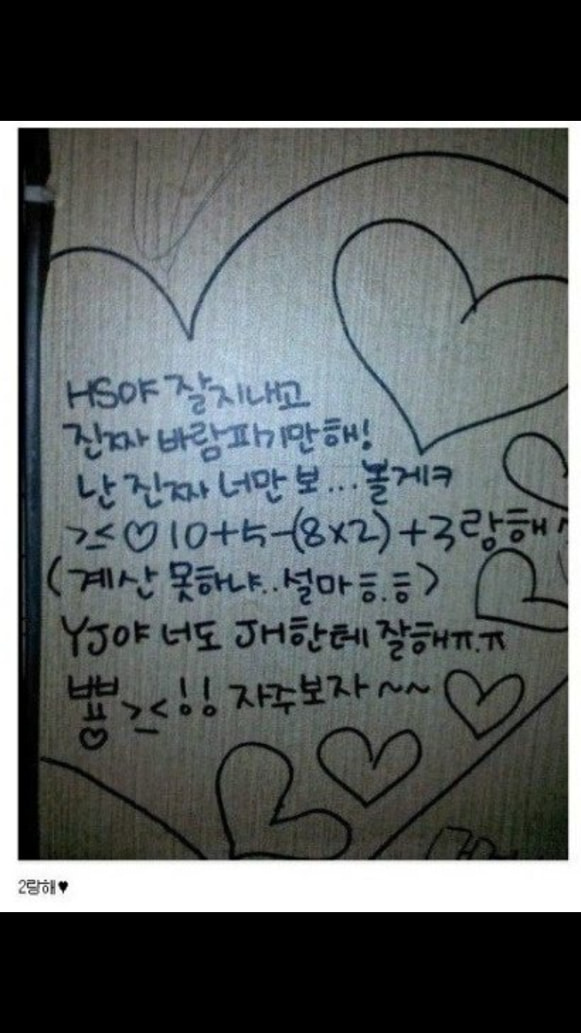 HS야 잘지내고
진짜 바람피기만해!
난 진짜 너만 보...볼게ㅋ
>_< ♡ 10+5-(8×2)+3랑해^
(계산 못하냐..설마ㅎ.ㅎ)
YJ야 너도 JH한테 잘해ㅠ.ㅠ
뿅 >_< !! 자주보자~~
2랑해♥